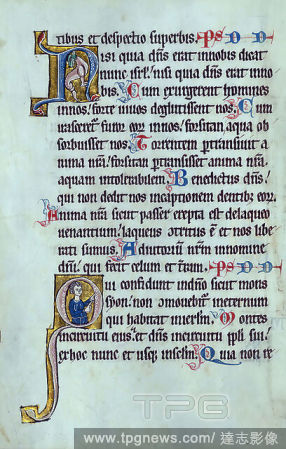 tibus et despectio superbis. ps d n
Nisi quia dñs erat innobis dicat
nunc isrl̃. nisi quia dñs erat inno
bis. Cum exurgerent homines
innos. forte vivos deglutissent nos. Cum
irasceret᷑ furor eor̃ innos. forsitan aqua ob
sorbuisset nos. Torrentem ptransivit a
nima nr̃a. forsitan ptransisset anima nr̃a.
aquam intolerabilem. Benedictus dñs.
qui non dedit nos incaptionem dentib; eor̃.
Anima nr̃a sicut passer erepta est delaqueo
venantium. laqueus ctritus ẽ et nos libe
rati sumus. Adiutoriũ nr̃m innomine
dñi. qui fecit celum et tr̃am. ps d n
Qui confidunt indño sicut mons
syon. non cmovebit᷑ ineternum
qui habitat inierlm̃. Montes
incircuitu eius. et dñs incircuitu ppli sui.
exhoc nunc et usq; insclm̃. Quia non re
TPG
www.tpgnews.com / 達志影像